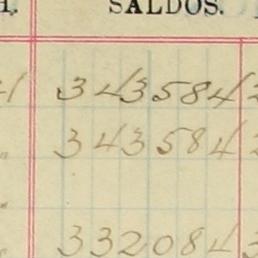 H. SALDOS.
343584
343584
332084